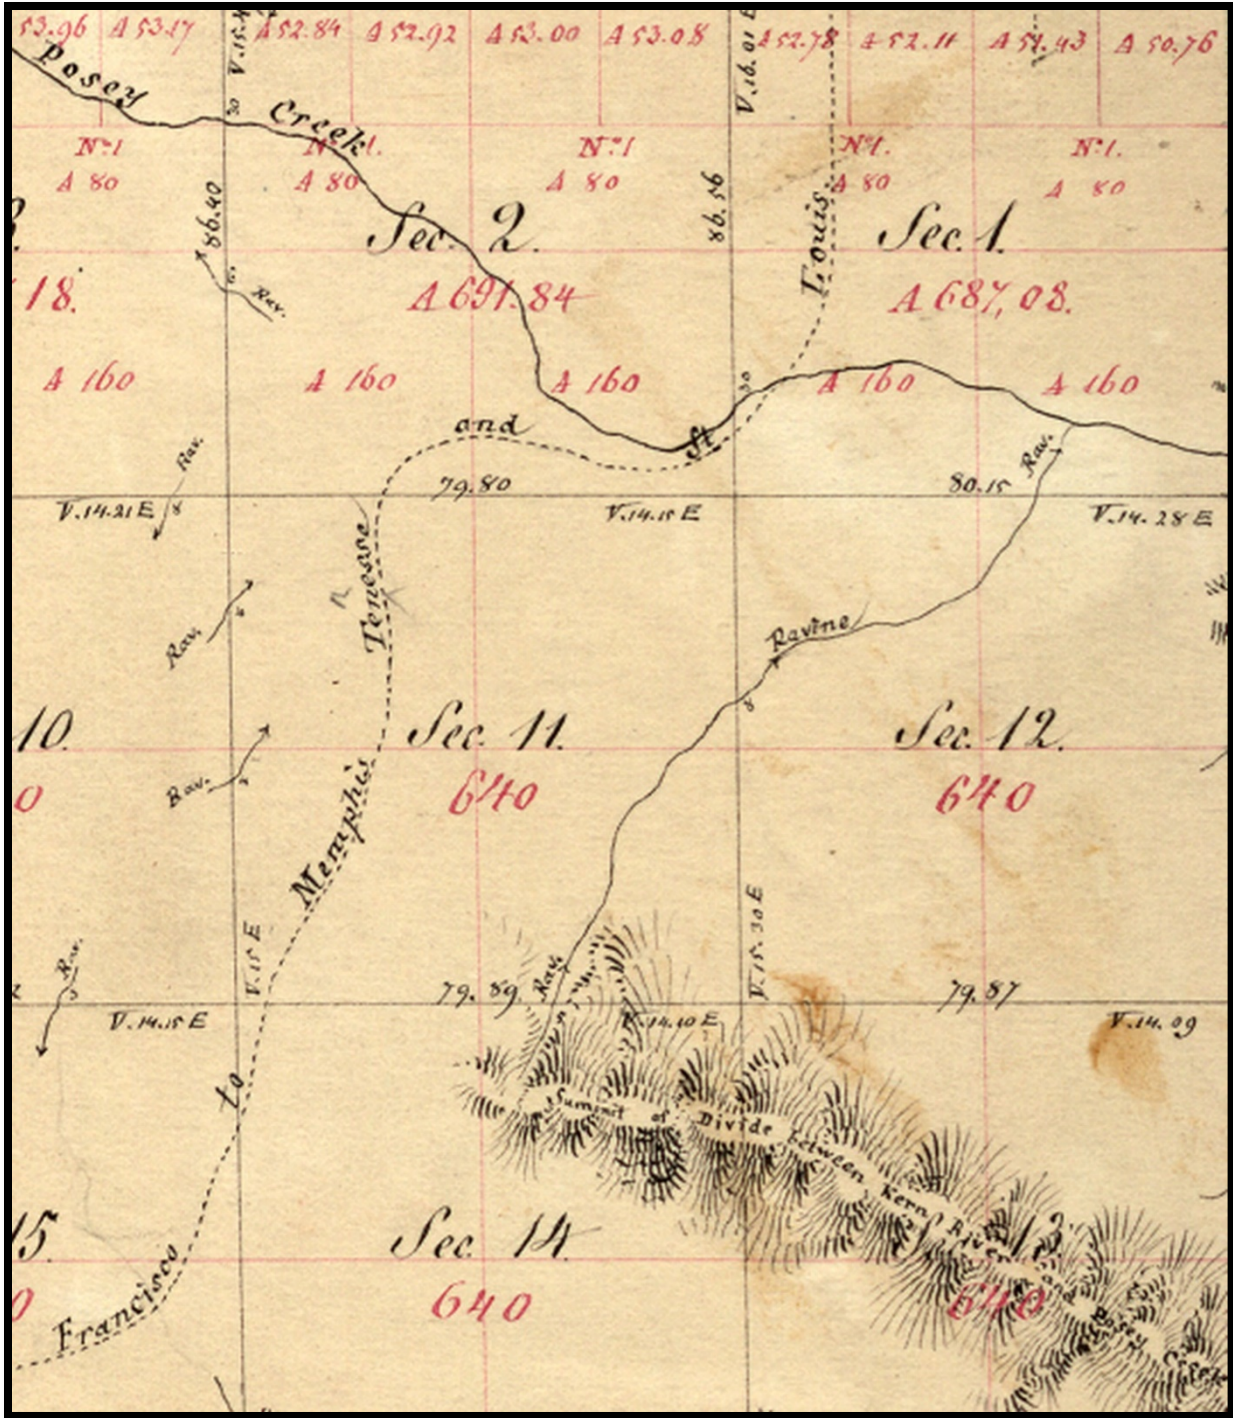 53.96 A 53.17 A 52.84 A 52.92 A 53.00 A 53.08 A 52.78 A 52.11 A 51.43 A 50.76
V.16.01 E
Posey Creek
30
No 1 No 1. No 1 No 1. No 1.
A 80 A 80 A 80 A 80 A 80
86.40
86.56
Louis
Sec. 2. Sec. 1.
18. A 691.84 A 687,08.
Rav.
A 160 A 160 A 160 A 160 A 160
30
and St
Rav.
Rav.
79.80 80.15
V.14.21 E 8 V.14.15 E V.14.28 E
Tenesse
Rav.
Ravine
8
10. Sec. 11. Sec. 12.
0 640 640
Rav.
Memphis
V.15 E
V.15.30 E
Rav.
Rav.
79.89 79.87
V.14.15 E V.14.10 E V.14.09
to
Summit of Divide between Kern River and Posey Creek
15. Sec. 14. Sec. 13.
0 640 640
Francisco